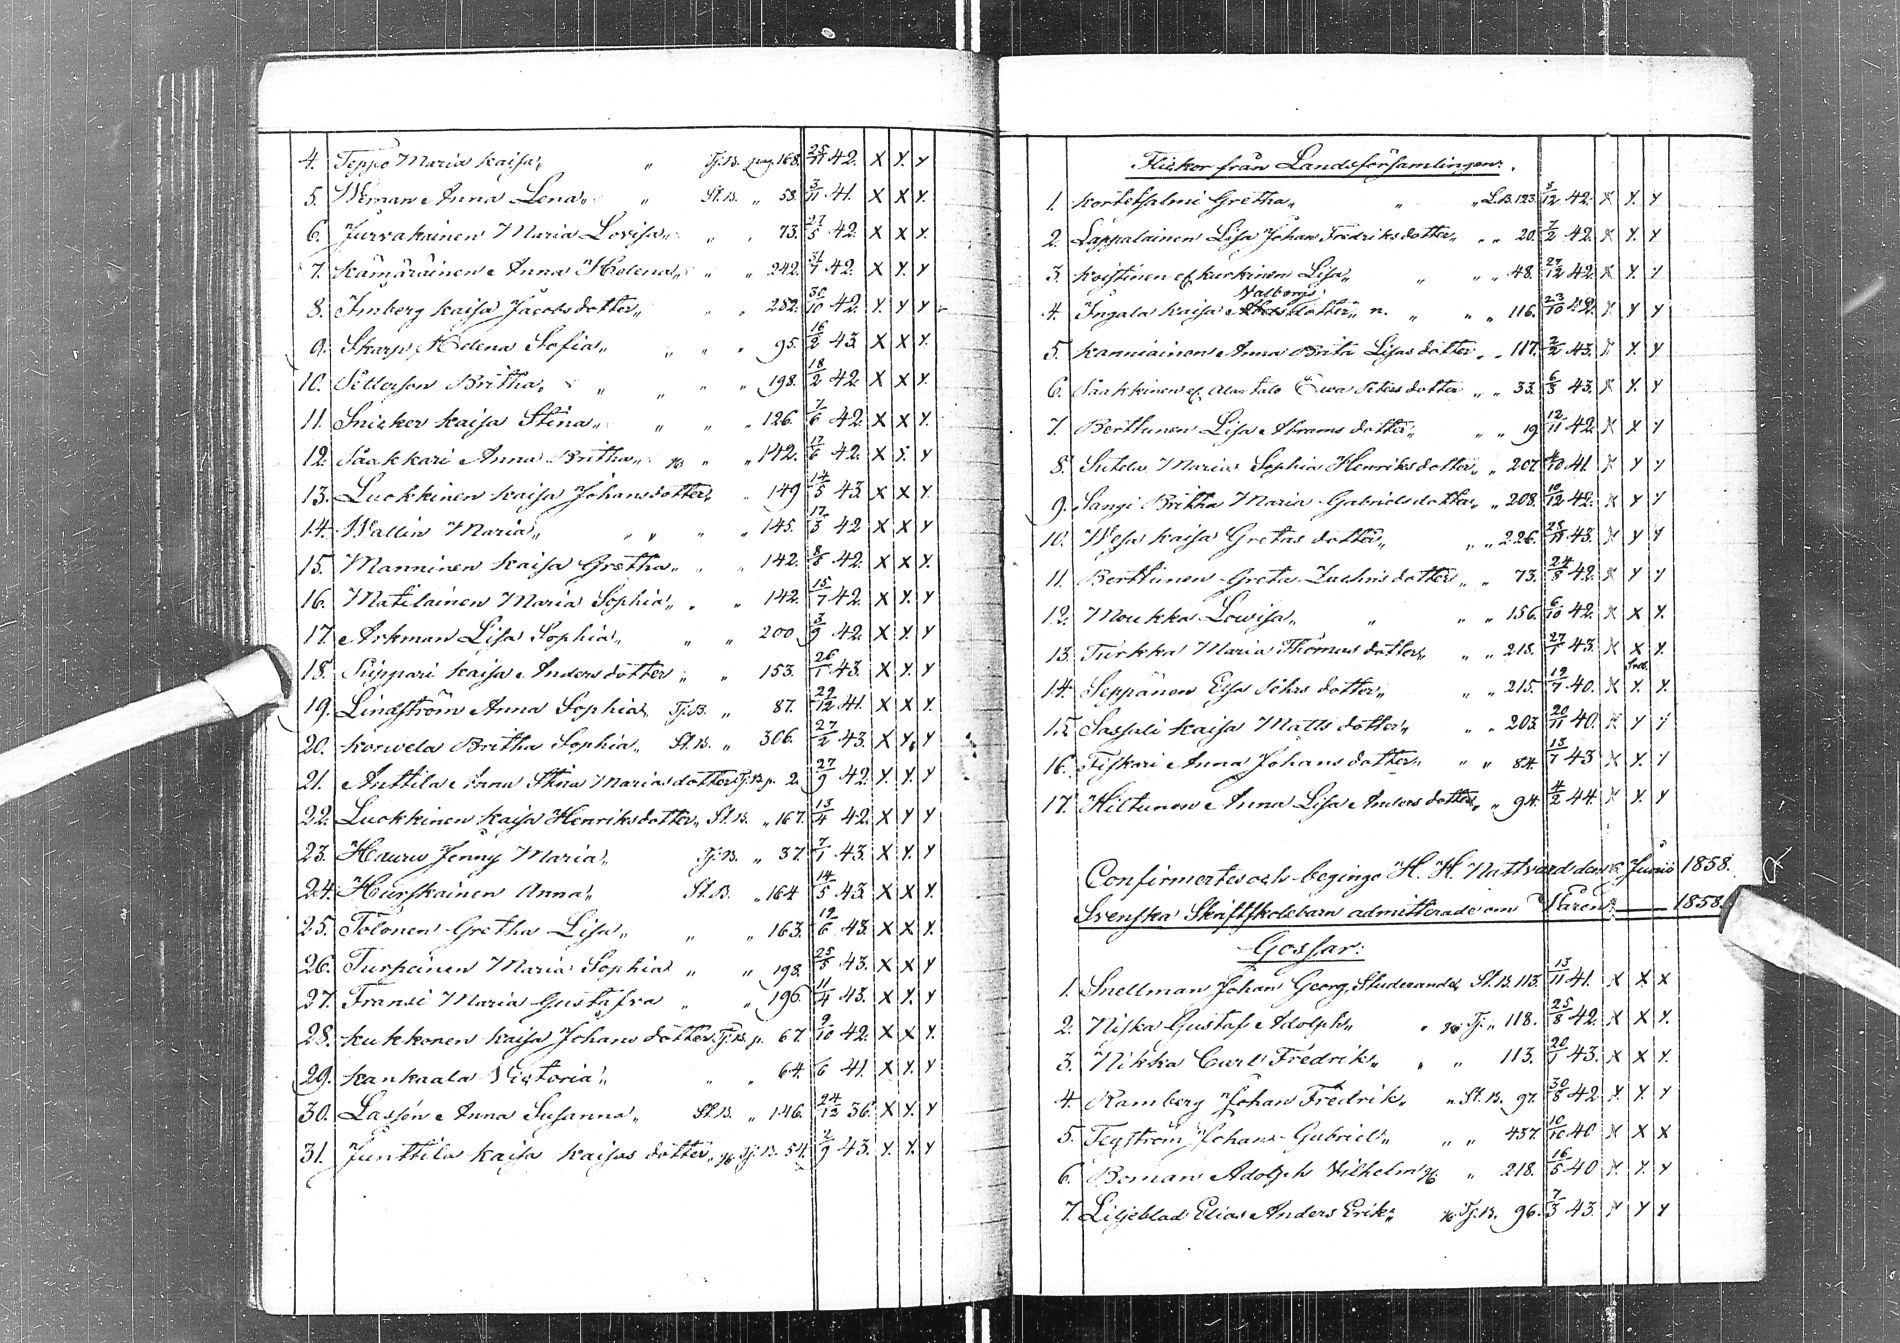 4. Teppo Maria Kaisa „ „ Tj.B. pag. 168. 25/11 42. X X X
5. Weman Anna Lena „ „ St.B. „ 58. 3/11 41. X X X
6. Jurvakainen Maria Lovisa „ „ „ 73. 27/5 42. X X X
7. Kämäräinen Anna Helena „ „ „ 242. 31/7 42. X X X
8. Imberg Kaisa Jacobsdotter „ „ „ 282. 30/10 42. X X X
9. Skarp Helena Sofia „ „ „ „ 95. 16/2 43 X X X
10. Petterson Britha „ „ „ „ „ 198. 18/2 42. X X X
11. Snicker Kaisa Stina „ „ „ „ 126. 7/6 42. X X X
12. Saakkari Anna Britha „ „ „ 142. 17/6 42. X X X
13. Luokkinen Kaisa Johansdotter „ „ 149 14/5 43. X X X
14. Wallin Maria „ „ „ „ „ 145. 17/3 42 X X X
15. Manninen Kaisa Gretha „ „ „ 142. 8/8 42. X X X
16. Matilainen Maria Sophia „ „ „ 142. 15/7 42. X X X
17. Arkman Lisa Sophia „ „ „ 200 3/9 42. X X X
18. Piippari Kaisa Andersdotter „ „ 153. 26/1 43. X X X
19. Lindström Anna Sophia Tj.B. „ 87. 29/12 41. X X X
20. Korwela Britha Sophia „ St.B. „ 306. 27/2 43. X X X
21. Anttila Anna Stina Mariasdotter Tj.B. p. 2. 27/9 42. X X X
22. Luokkinen Kaisa Henriksdotter „ St.B. „ 167. 13/4 42. X X X
23. Hauru Jenny Maria „ Tj.B. „ 37. 7/1 43. X X X
24. Hurskainen Anna „ St.B. „ 164 14/5 43. X X X
25. Tolonen Gretha Lisa „ „ „ 163. 12/6 43. X X X
26. Turpeinen Maria Sophia „ „ 198. 25/5 43. X X X
27. Fransi Maria Gustafva „ „ 196. 11/4 43. X X X
28. Kukkonen Kaisa Johansdotter Tj.B. p. 67. 9/10 42. X X X
29. Kankaala Victoria „ „ „ 64. 6 41. X X X
30. Lassén Anna Susanna „ St.B. „ 146. 24/12 36. X X X
31. Junttila Kaisa Kaisas dotter „ Tj.B. 54. 2/9 43. X X X
Flickor från Landsförsamlingen.
1. Kortetsalmi Gretha „ „ „ L.B. 123. 5/12 42. X X X
2. Lappalainen Lisa Johan Fredriksdotter „ „ „ 20. 7/2 42. X X X
3. Koistinen ef. Kurkinen Lisa „ „ „ „ 48. 27/12 42. X X X
Valborgs
4. Ingala Kaisa dotter „ n. „ „ „ 116. 23/10 42. X X X
5. Kanniainen Anna Brita Lisas dotter „ „ 117. 2/2 43. X X X
6. Saakkinen ef. Alatalo Ewa Petersdotter „ „ 33. 6/3 43. X X X
7. Berttunen Lisa Abramsdotter „ „ „ 19 12/11 42. X X X
8. Sutela Maria Sophia Henriksdotter „ „ 207. 4/10 41 X X X
9. Sangi Britha Maria Gabrielsdotter „ „ 208. 10/12 42. X X X
10. Wesa Kaisa Gretas dotter „ „ „ 226. 23/11 43. X X X
11. Berttunen Greta Zachrisdotter „ „ 73. 24/8 42. X X X
12. Moukka Lowisa „ „ „ „ 156. 6/10 42. X X X
13. Pirkka Maria Thomasdotter „ „ „ 218. 27/7 43. X X X
14. Seppänen Elsa Pehrs dotter „ „ „ 215. 12/7 40. X X X
15. Sassali Kaisa Matts dotter „ „ „ 203. 20/11 40. X X X
16. Fiskari Anna Johansdotter „ „ „ 84. 13/7 43 X X X
17. Hiltunen Anna Lisa Andersdotter „ „ 94. 4/2 44. X X X
Confirmertes och begingo H. H. Nattvard den 6 Junii 1858.
Svenska Skriftskolebarn admitterade om Våren 1858.
Gossar.
1. Snellman Johan Georg, Studerande, St.B. 113. 13/11 41. X X X
2. Niska Gustaf Adolph „ „ Tj. „ 118. 25/8 42. X X X
3. Nikka Carl Fredrik „ „ „ 113. 20/1 43. X X X
4. Ramberg Johan Fredrik „ „ St.B. 97. 30/8 42 X X X
5. Tegström Johan Gabriel „ „ „ 437. 10/10 40 X X X
6. Boman Adolph Wilhelm „ 218. 16/5 40 X X X
7. Liljeblad Elias Anders Erik „ Tj.B. 96. 7/3 43. X X X